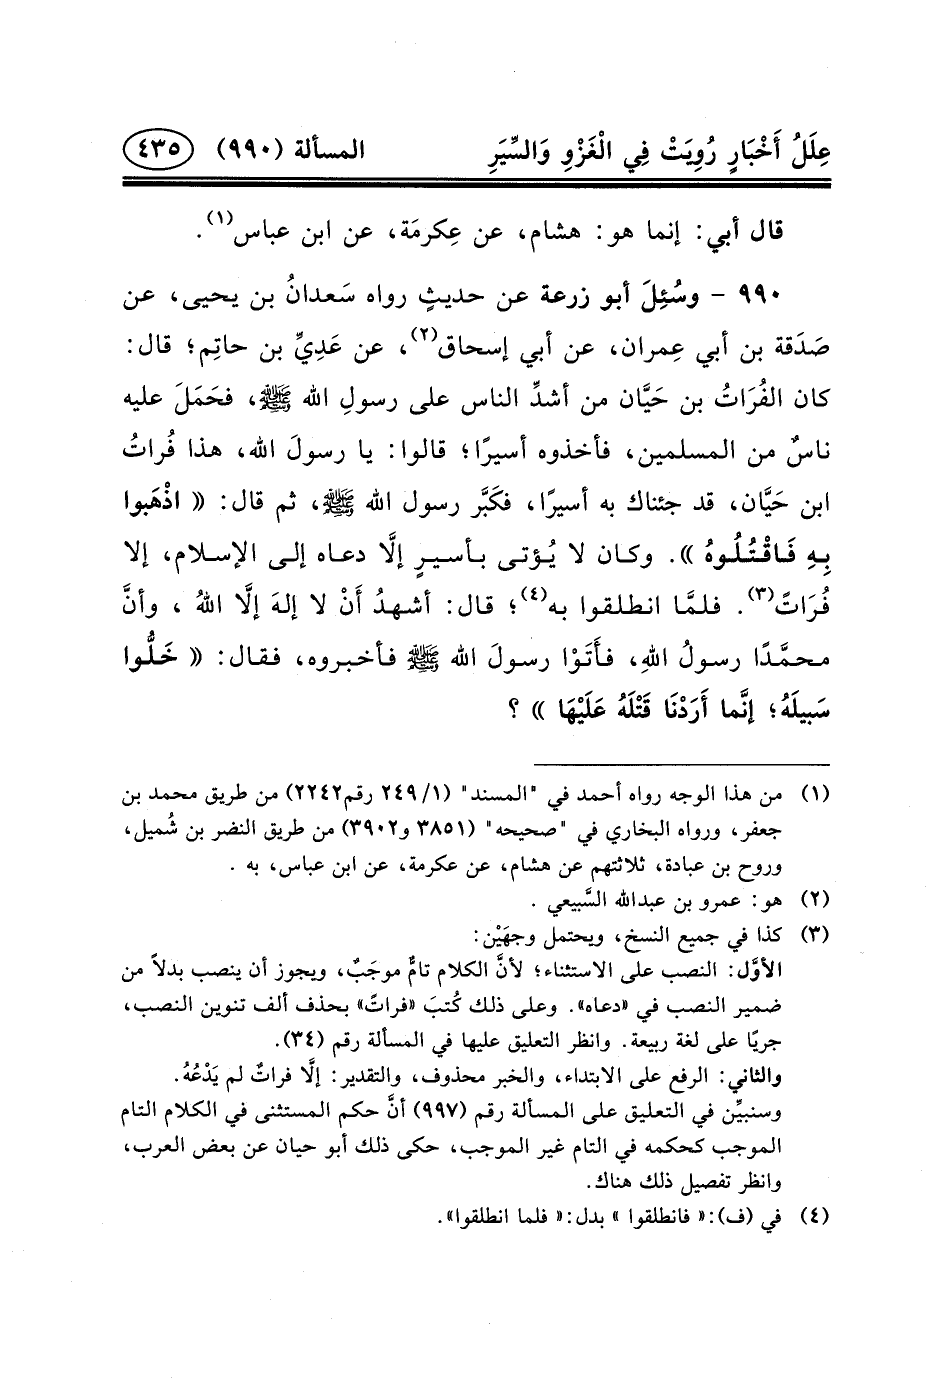 عِلَلُ أَخْبَارٍ رُوِيَتْ فِي الْغَزْوِ وَالسِّيَرِ المسألة (٩٩٠) ٤٣٥
قال أبي: إنما هو: هشام، عن عِكرمَة، عن ابن عباس(١).
٩٩٠ - وسُئِلَ أبو زرعة عن حديثٍ رواه سَعدانُ بن يحيى، عن
صَدَقة بن أبي عِمران، عن أبي إسحاق(٢)، عن عَدِيِّ بن حاتِم؛ قال:
كان الفُرَاتُ بن حَيَّان من أشدِّ الناس على رسولِ الله ﷺ، فحَمَلَ عليه
ناسٌ من المسلمين، فأخذوه أسيرًا؛ قالوا: يا رسولَ الله، هذا فُراتُ
ابن حَيَّان، قد جئناك به أسيرًا، فكَبَّر رسول الله ﷺ، ثم قال: « اذْهَبوا
بِهِ فَاقْتُلُوهُ ». وكان لا يُؤتى بأسيرٍ إلَّا دعاه إلى الإسلام، إلا
فُرَاتً(٣). فلمَّا انطلقوا به(٤)؛ قال: أشهدُ أَنْ لا إلهَ إلَّا اللهُ ، وأنَّ
محمَّدًا رسولُ اللهِ، فأَتَوْا رسولَ الله ﷺ فأخبروه، فقال: « خَلُّوا
سَبِيلَهُ؛ إنَّما أَرَدْنَا قَتْلَهُ عَلَيْهَا » ؟
(١) من هذا الوجه رواه أحمد في "المسند" (٢٤٩/١ رقم٢٢٤٢) من طريق محمد بن
جعفر، ورواه البخاري في "صحيحه" (٣٨٥١ و٣٩٠٢) من طريق النضر بن شُميل،
وروح بن عبادة، ثلاثتهم عن هشام، عن عكرمة، عن ابن عباس، به .
(٢) هو: عمرو بن عبدالله السَّبيعي .
(٣) كذا في جميع النسخ، ويحتمل وجهَيْن:
الأوَّل: النصب على الاستثناء؛ لأنَّ الكلام تامٌّ موجَبٌ، ويجوز أن ينصب بدلاً من
ضمير النصب في «دعاه». وعلى ذلك كُتبَ «فراتً» بحذف ألف تنوين النصب،
جريًا على لغة ربيعة. وانظر التعليق عليها في المسألة رقم (٣٤).
والثاني: الرفع على الابتداء، والخبر محذوف، والتقدير: إلَّا فراتٌ لم يَدْعُهُ.
وسنبيِّن في التعليق على المسألة رقم (٩٩٧) أنَّ حكم المستثنى في الكلام التام
الموجب كحكمه في التام غير الموجب، حكى ذلك أبو حيان عن بعض العرب،
وانظر تفصيل ذلك هناك.
(٤) في (ف):« فانطلقوا » بدل:« فلما انطلقوا».